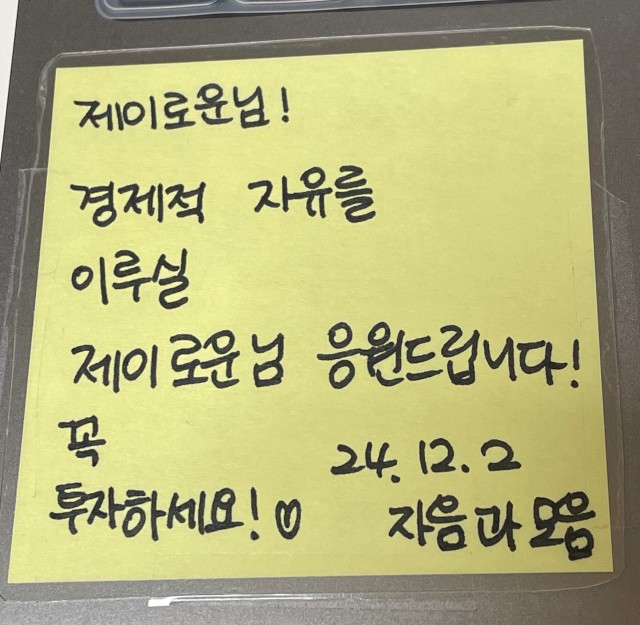 제이로운님!
경제적 자유를
이루실
제이로운님 응원드립니다!
꼭
투자하세요!♡
24.12.2
자음과모음